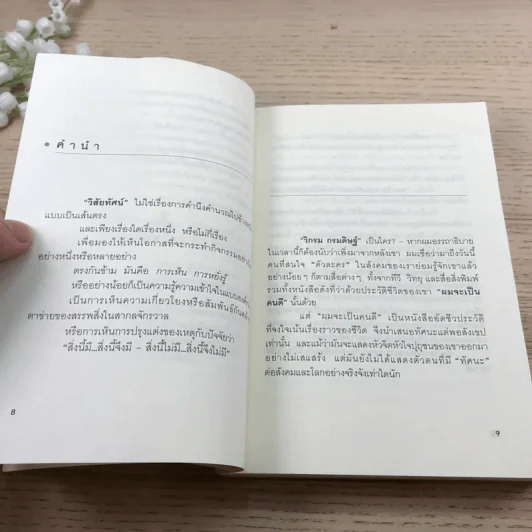 คำนำ
"วิสัยทัศน์" ไม่ใช่เรื่องการคำนึงคำนวณไปข้างหน้า
แบบเป็นเส้นตรง
และเพียงเรื่องใดเรื่องหนึ่ง หรือไม่กี่เรื่อง
เพื่อมองให้เห็นโอกาสที่จะกระทำกิจกรรม
อย่างหนึ่งหรือหลายอย่าง
ตรงกันข้าม มันคือ การเห็น การหยั่งรู้
หรืออย่างน้อยก็เป็นความรู้ความเข้าใจในแบบของ
เป็นการเห็นความเกี่ยวโยงหรือสัมพันธ์กัน
ตาข่ายของสรรพสิ่งในสากลจักรวาล
หรือการเห็นการปรุงแต่งของเหตุกับปัจจัยว่า
"สิ่งนี้มี...สิ่งนี้จึงมี – สิ่งนี้ไม่มี...สิ่งนี้จึงไม่มี"
8
"วิกรม กรมดิษฐ์" เป็นใคร? – หากผมอรรถาธิบาย
ในเวลานี้ก็ต้องนับว่าเพิ่งมาจากหลังเขา ผมเชื่อว่ามาถึงวันนี้
คนที่สนใจ "ตัวละคร" ในสังคมของเราย่อมรู้จักเขาแล้ว
อย่างน้อยๆ ก็ตามสื่อต่างๆ ทั้งจากทีวี วิทยุ และสื่อสิ่งพิมพ์
รวมทั้งหนังสือดังที่ว่าด้วยประสบัติชีวิตของเขา "ผมจะเป็น
คนดี" นั้นด้วย
แต่ "ผมจะเป็นคนดี" เป็นหนังสืออัตชีวประวัติ
ที่จงใจเน้นเรื่องราวของชีวิต จึงนำเสนอทัศนะแต่พอสังเขป
เท่านั้น และแม้ว่ามันจะแสดงหัวจิตหัวใจปุถุชนของเขาออกมา
อย่างไม่เสแสร้ง แต่มันยังไม่ได้แสดงตัวตนที่มี "ทัศนะ"
ต่อสังคมและโลกอย่างจริงจังเท่าใดนัก
9